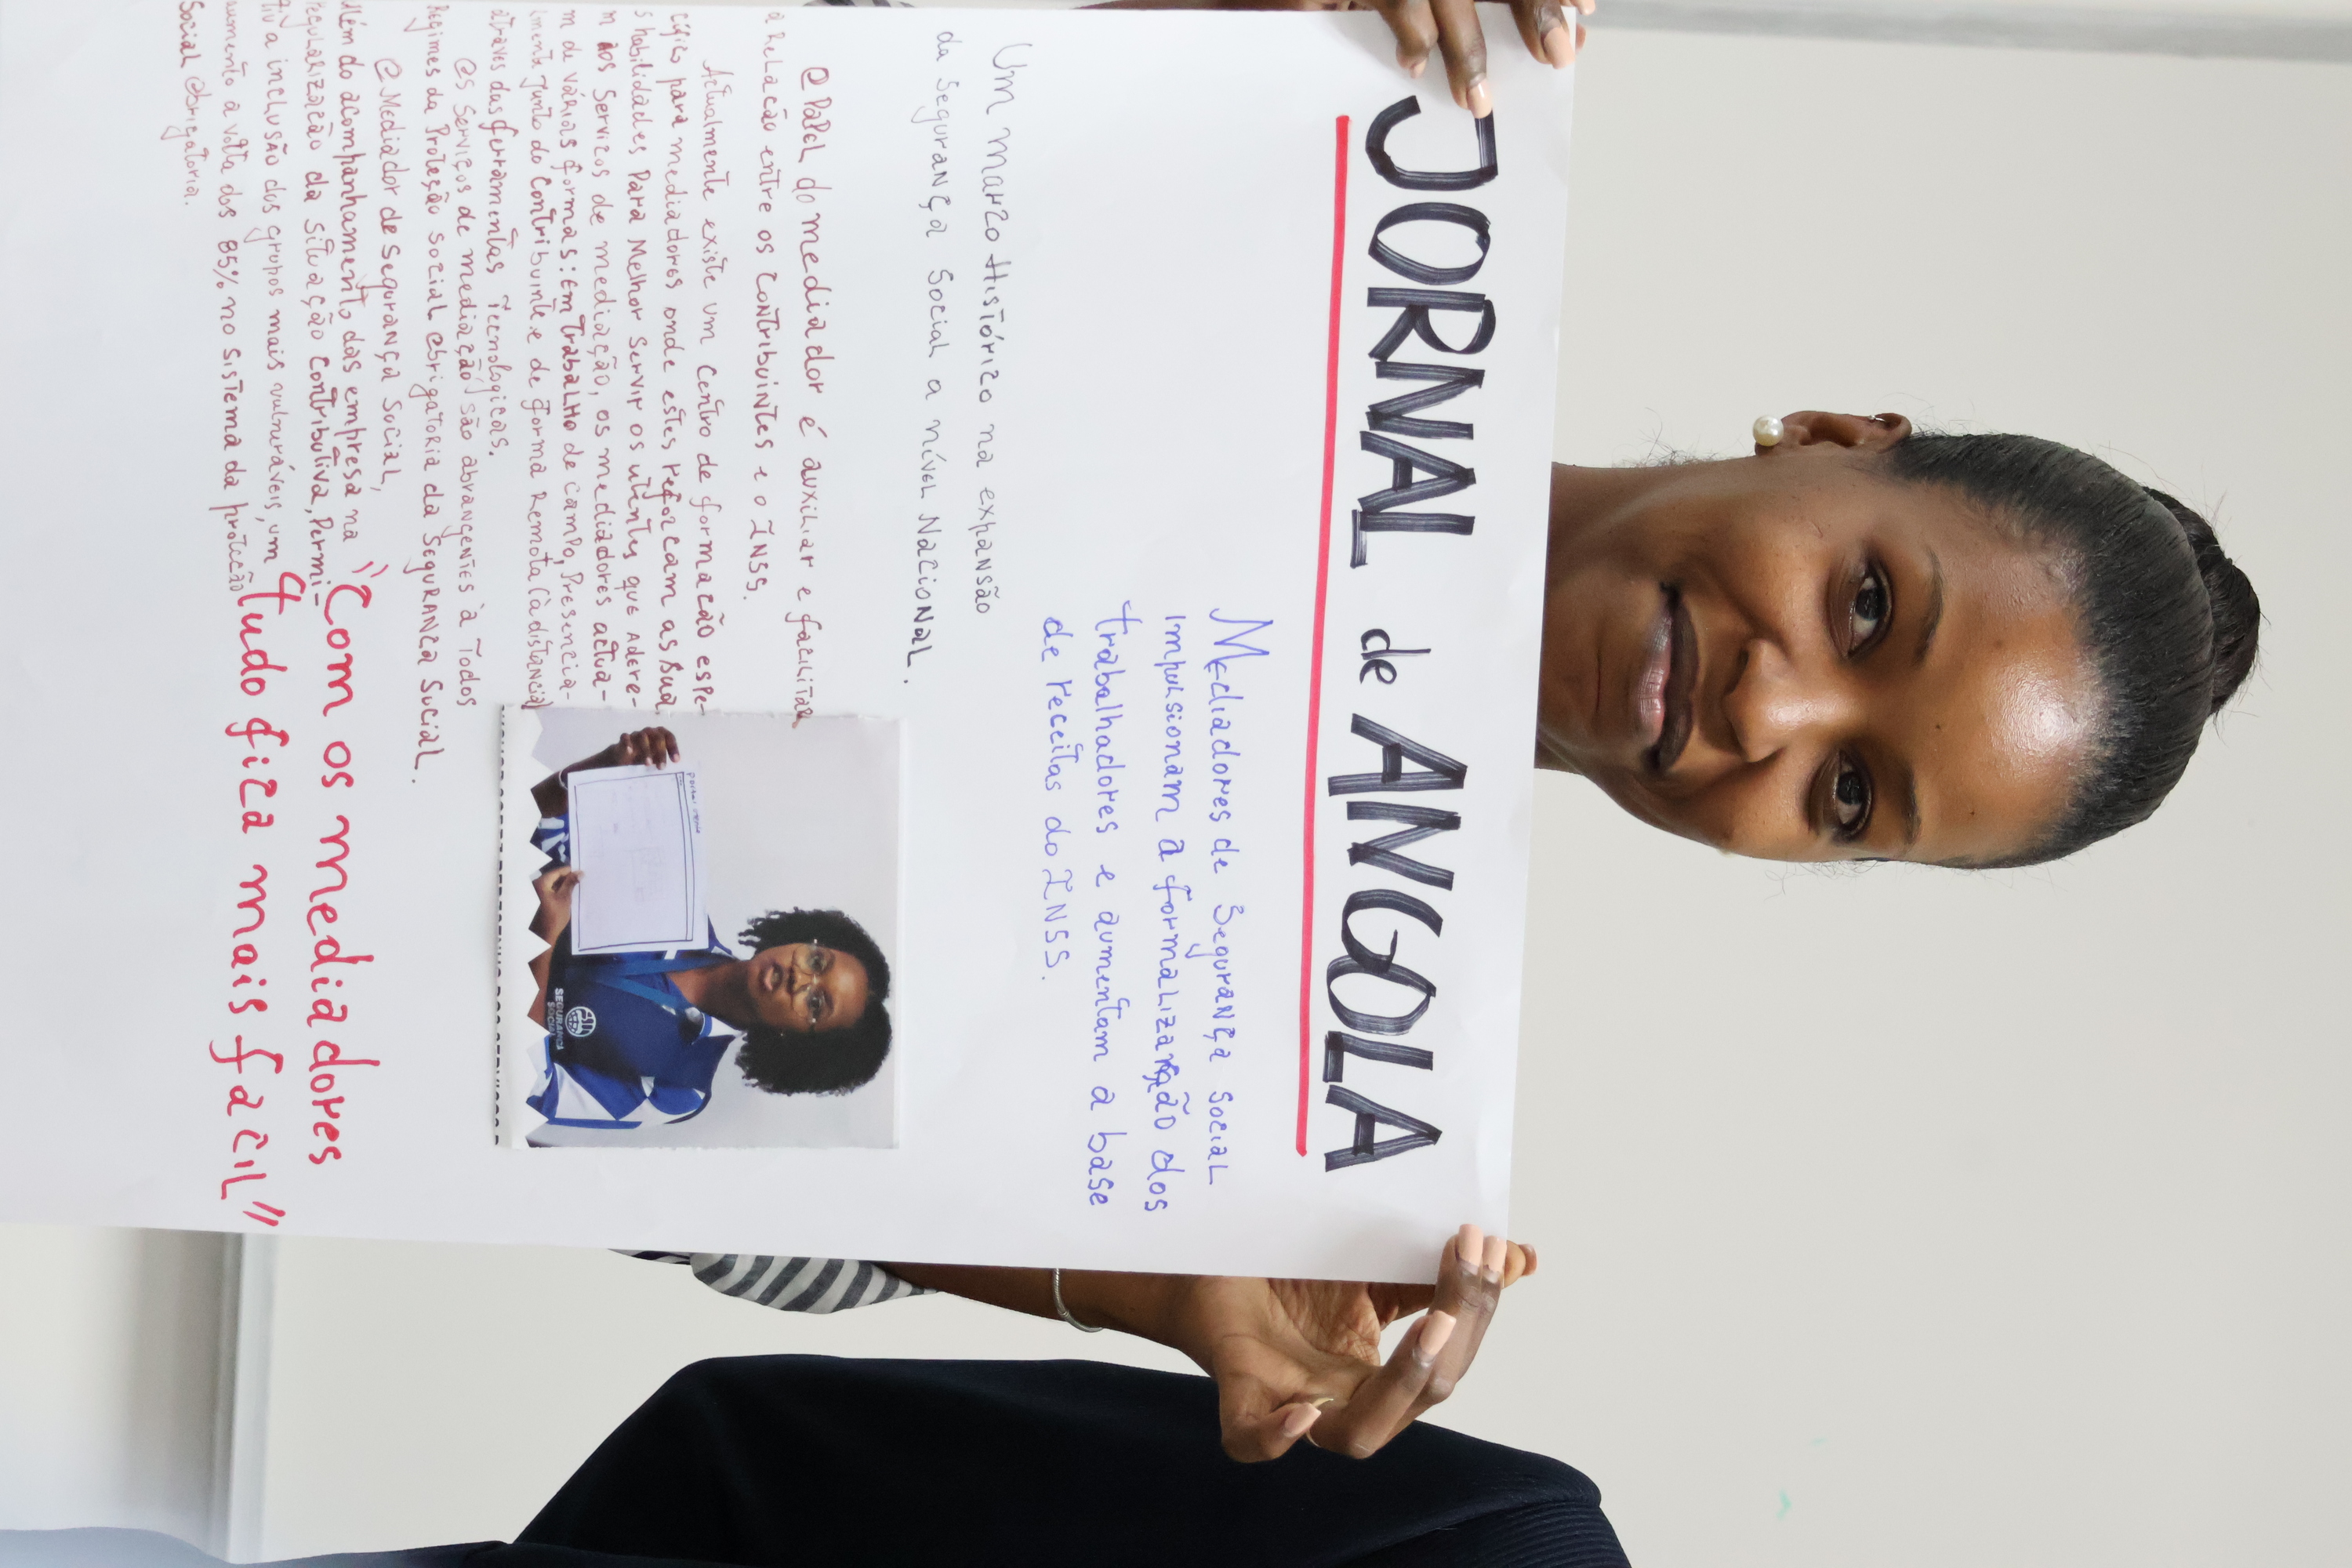 JORNAL de ANGOLA
Mediadores de Segurança Social
impulsionam a formalização dos
trabalhadores e aumentam a base
de receitas do INSS.
Um marzo Histórizo na expansão
da Segurança Social a nível Nacional.
O Papel do mediador é auxiliar e facilitar
a relação entre os contribuintes e o INSS.
Actualmente existe um centro de formação espe-
cífico para mediadores onde estes reforcam as sua
s habilidades Para Melhor Servir os utentes que Adere-
m aos Servizos de mediação, os mediadores actua-
m de várias formas: Em trabalho de campo, Presencia-
lmente junto do contribuinte e de forma Remota (à distância)
através das ferramentas Tecnologicas.
Os Serviços de mediação são abrangentes à Todos
Regimes da Proteção social Obrigatoria da Segurança Social.
O Mediador de Segurança Social,
Além do acompanhamento das empresa na
regularização da situação contributiva, Permi-
tiu a inclusão dos grupos mais vulneráveis, um
aumento a volta dos 85% no sistema da proteção
Social Obrigatoria.
SEGURANÇA
SOCIAL
"Com os mediadores
tudo fiza mais fácil"